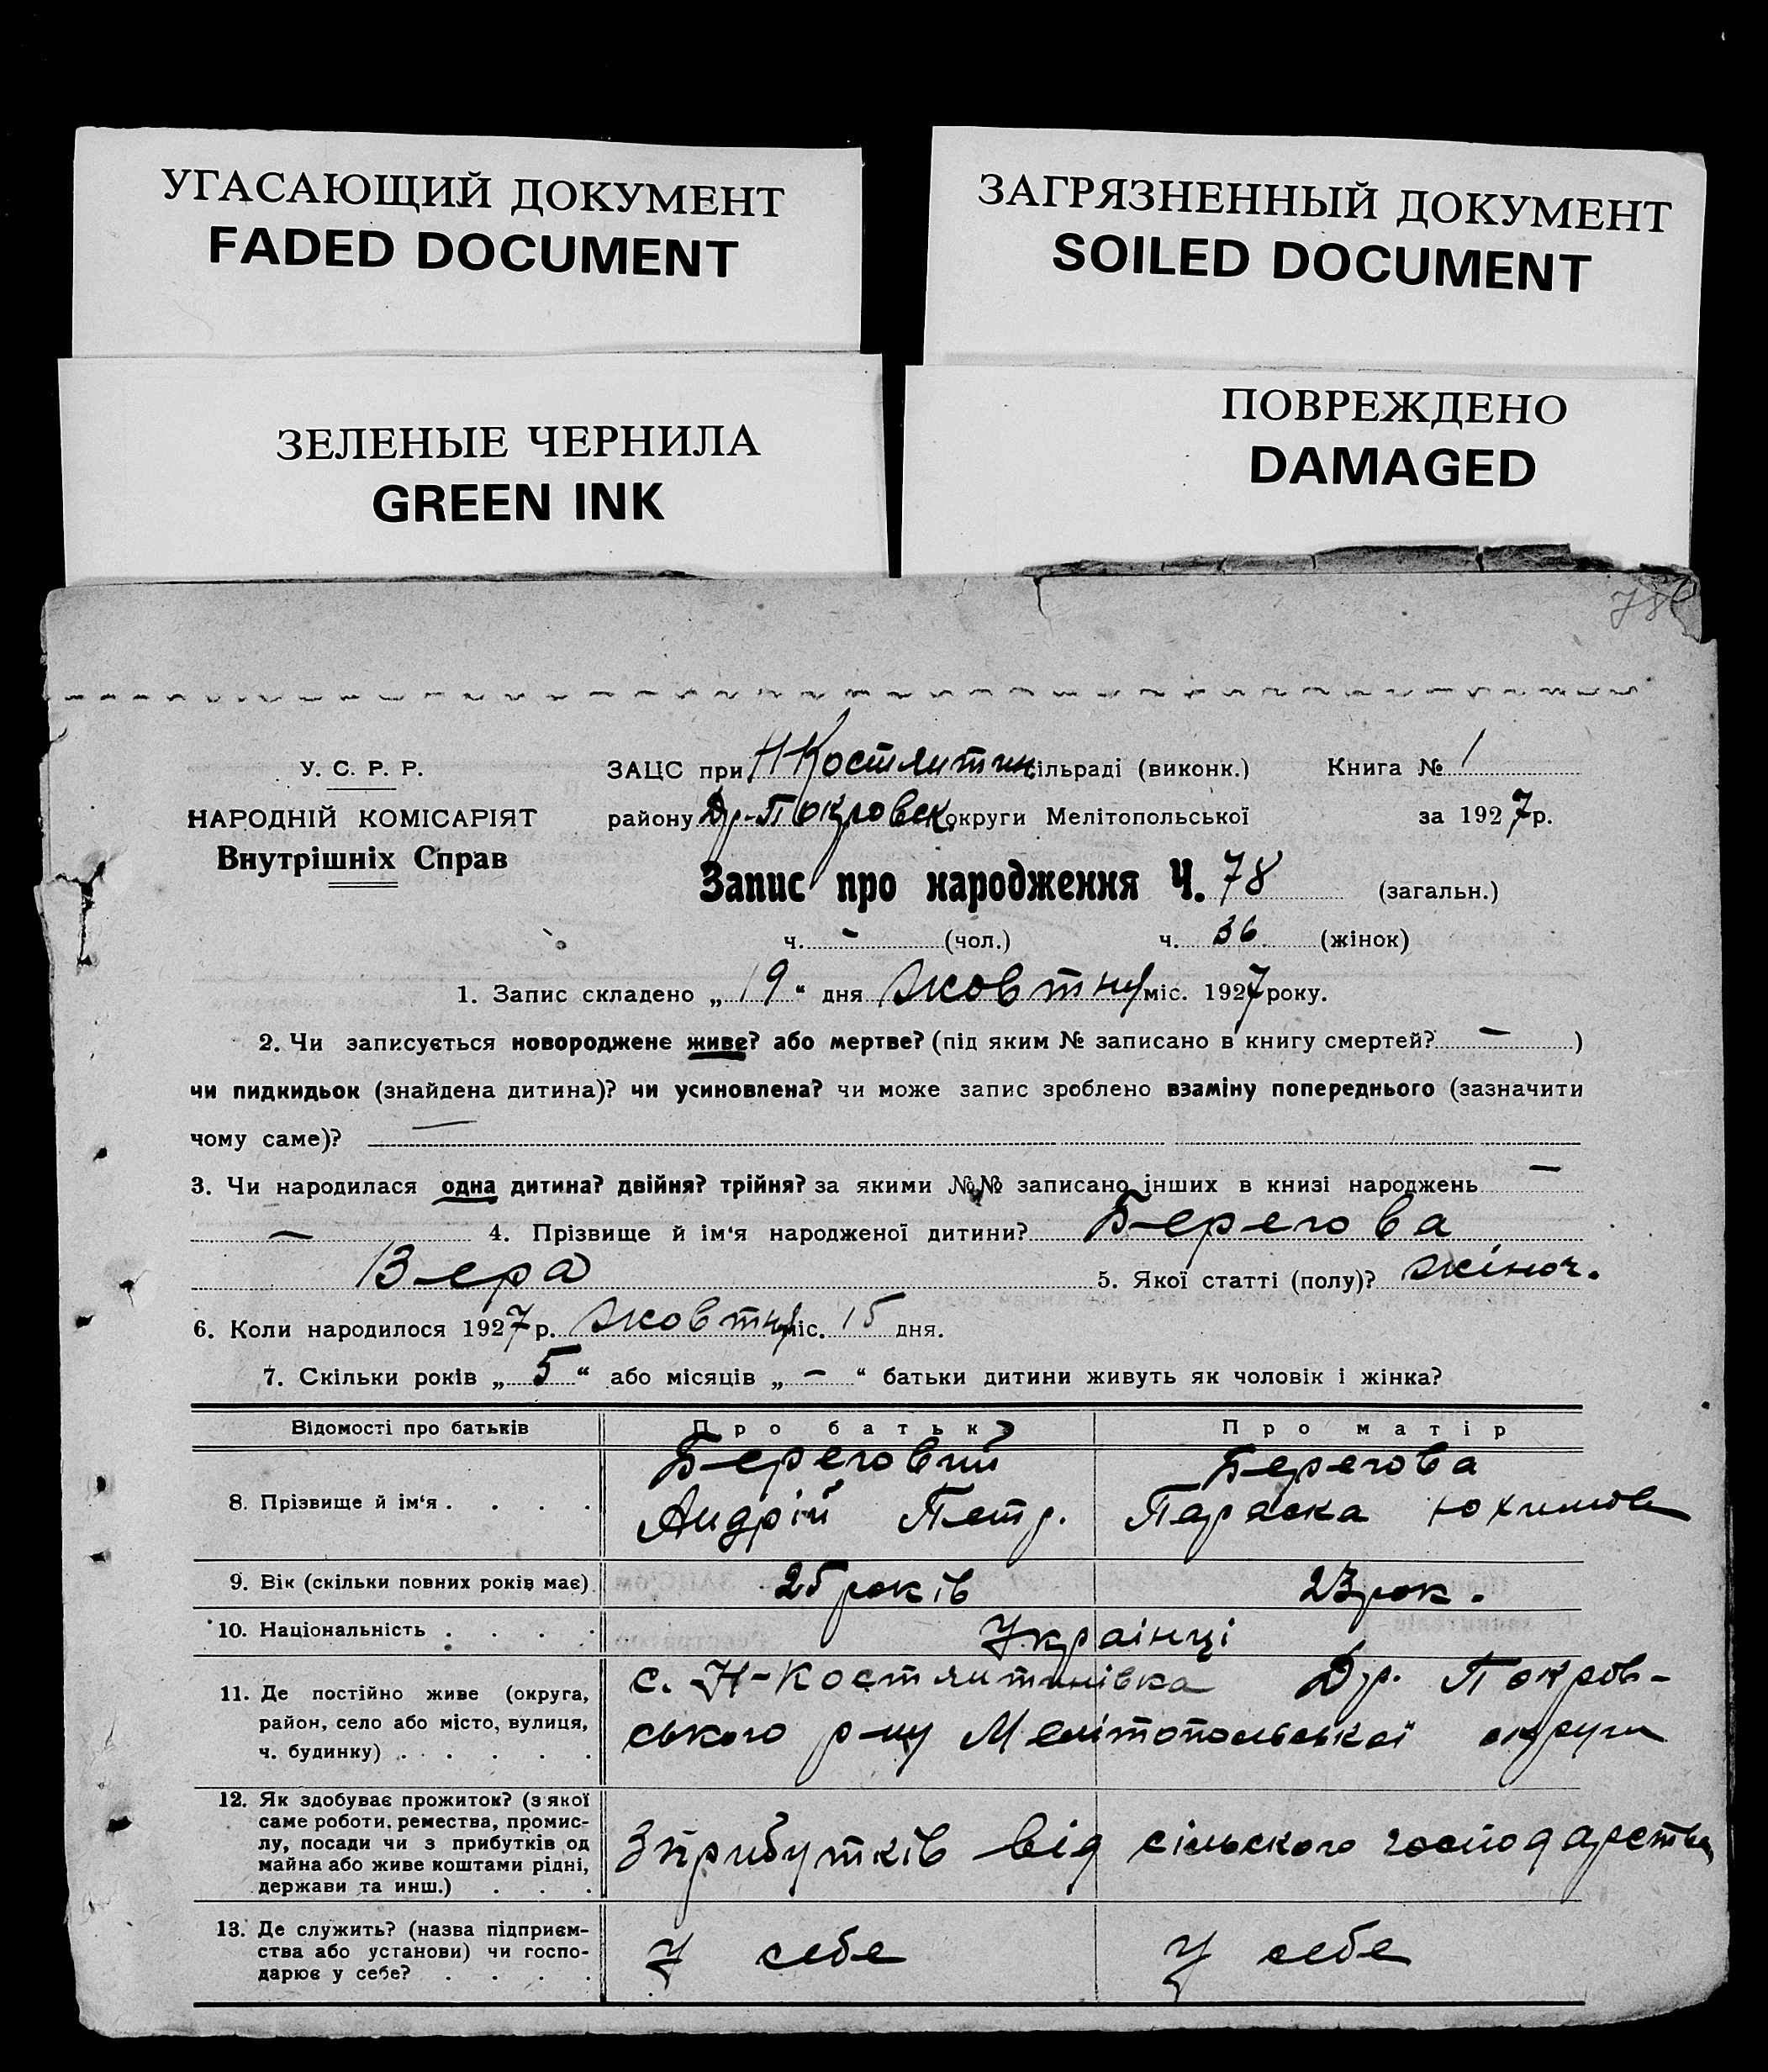 УГАСАЮЩИЙ ДОКУМЕНТ
FADED DOCUMENT
ЗАГРЯЗНЕННЫЙ ДОКУМЕНТ
SOILED DOCUMENT
ЗЕЛЕНЫЕ ЧЕРНИЛА
GREEN INK
ПОВРЕЖДЕНО
DAMAGED
У. С. Р. Р.
НАРОДНІЙ КОМІСАРІЯТ
Внутрішніх Справ
ЗАЦС при Н Костянтин сільраді (виконк.) Книга № 1
району Др-Покровск. округи Мелітопольської за 1927 р.
Запис про народження Ч. 78 (загальн.)
ч. - (чол.) ч. 36 (жінок)
1. Запис складено „ 19 “ дня жовтня міс. 1927 року.
2. Чи записується новороджене живе? або мертве? (під яким № записано в книгу смертей? — )
чи пидкидьок (знайдена дитина)? чи усиновлена? чи може запис зроблено взаміну попереднього (зазначити
чому саме)? —
3. Чи народилася одна дитина? двійня? трійня? за якими №№ записано інших в книзі народжень —
— 4. Прізвище й ім‘я народженої дитини? Берегова
Вера 5. Якої статті (полу)? жіноч.
6. Коли народилося 1927 р. жовтня міс. 15 дня.
7. Скільки років „ 5 “ або місяців „ — “ батьки дитини живуть як чоловік і жінка?
Відомості про батьків Про батька Про матір
8. Прізвище й ім‘я . . . . Береговий Берегова
Андрій Петр. Параска Юхимов
9. Вік (скільки повних років має) 25 років 23 рок.
10. Національність . . . . Українці
11. Де постійно живе (округа, с. Н-Костянтинівка Др. Покров-
район, село або місто, вулиця, ського р-ну Мелітопольської округи
ч. будинку) . . . . . .
12. Як здобуває прожиток? (з якої
саме роботи, ремества, промис-
лу, посади чи з прибутків од З прибутків від сільского господарства
майна або живе коштами рідні,
держави та инш.) . . .
13. Де служить? (назва підприєм-
ства або установи) чи госпо- У себе У себе
дарює у себе? . . . .